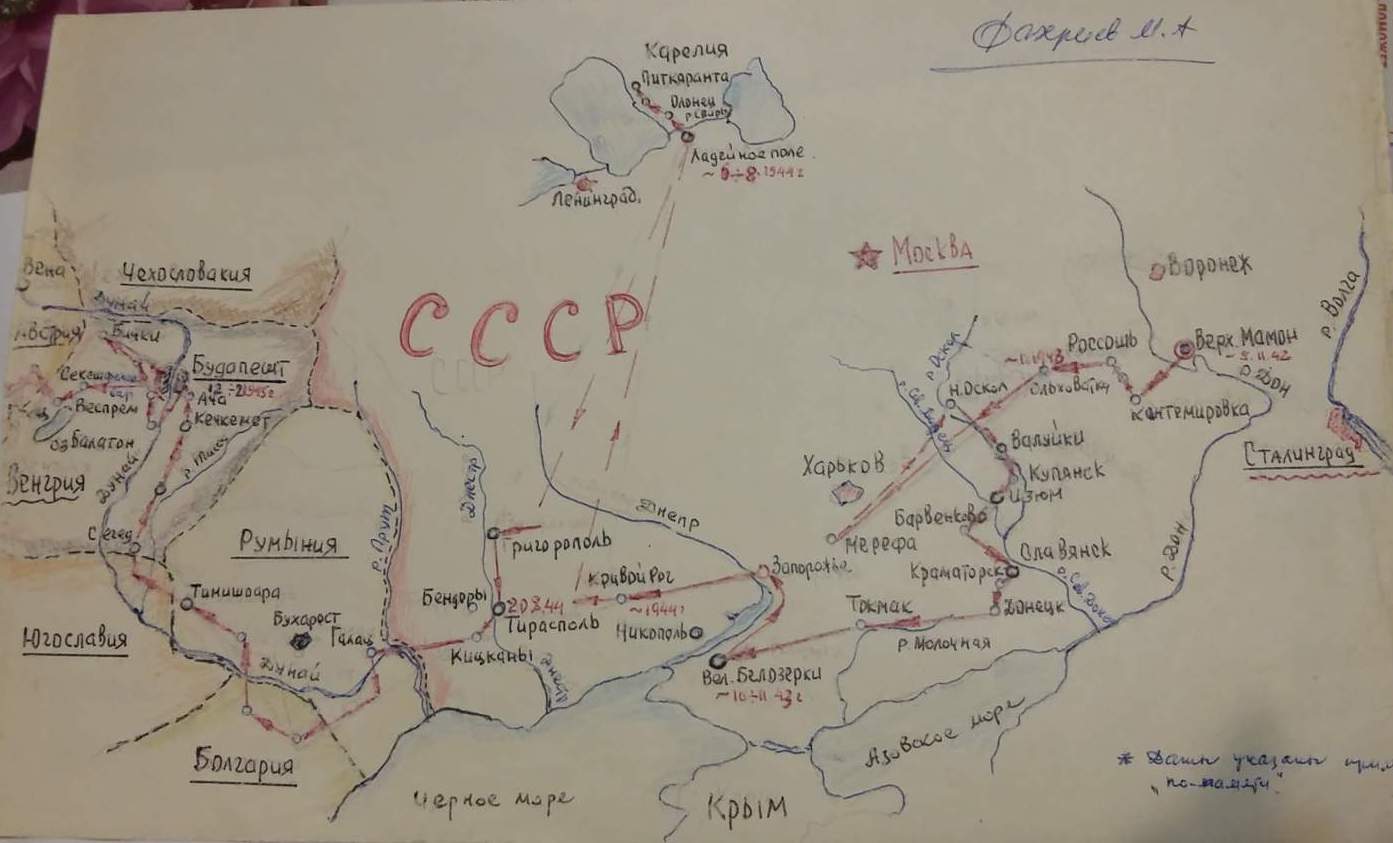 Фахриев М.А
Карелия
Питкаранта
Олонец
р Свирь
Ладейное поле.
~ 6÷8.1944г
Ленинград.
Москва
СССР
Воронеж
р. Волга
Вена
Чехословакия
Дунай
Австрия
Бички
Будапешт
12÷2 1945г
Ача
Веспрем
Кечкемет
оз Балатон
р. Тиса
Дунай
Венгрия
Сегед
Верх. Мамон
~ 8.11.42
р. Дон
Россошь
Ольховатка
Кантемировка
р. Оскол
Н. Оскол
Валуйки
Сталинград
Харьков
Купянск
Изюм
Барвенково
Мерефа
Славянск
Краматорск
Донецк
р. Дон
Днестр
Днепр
Григорополь
Запорожье
Кривой Рог
~1944г
Никополь
Токмак
р. Молочная
Вел. Белозерки
~ 10÷11.43г
Румыния
р. Прут
Бендоры
20 8.44
Тирасполь
Кицканы
Днестр
Тимишоара
Бухарост
Галац
Дунай
Югославия
Болгария
Черное море
Крым
Азовское море
* Даты указаны
"по-памяти"